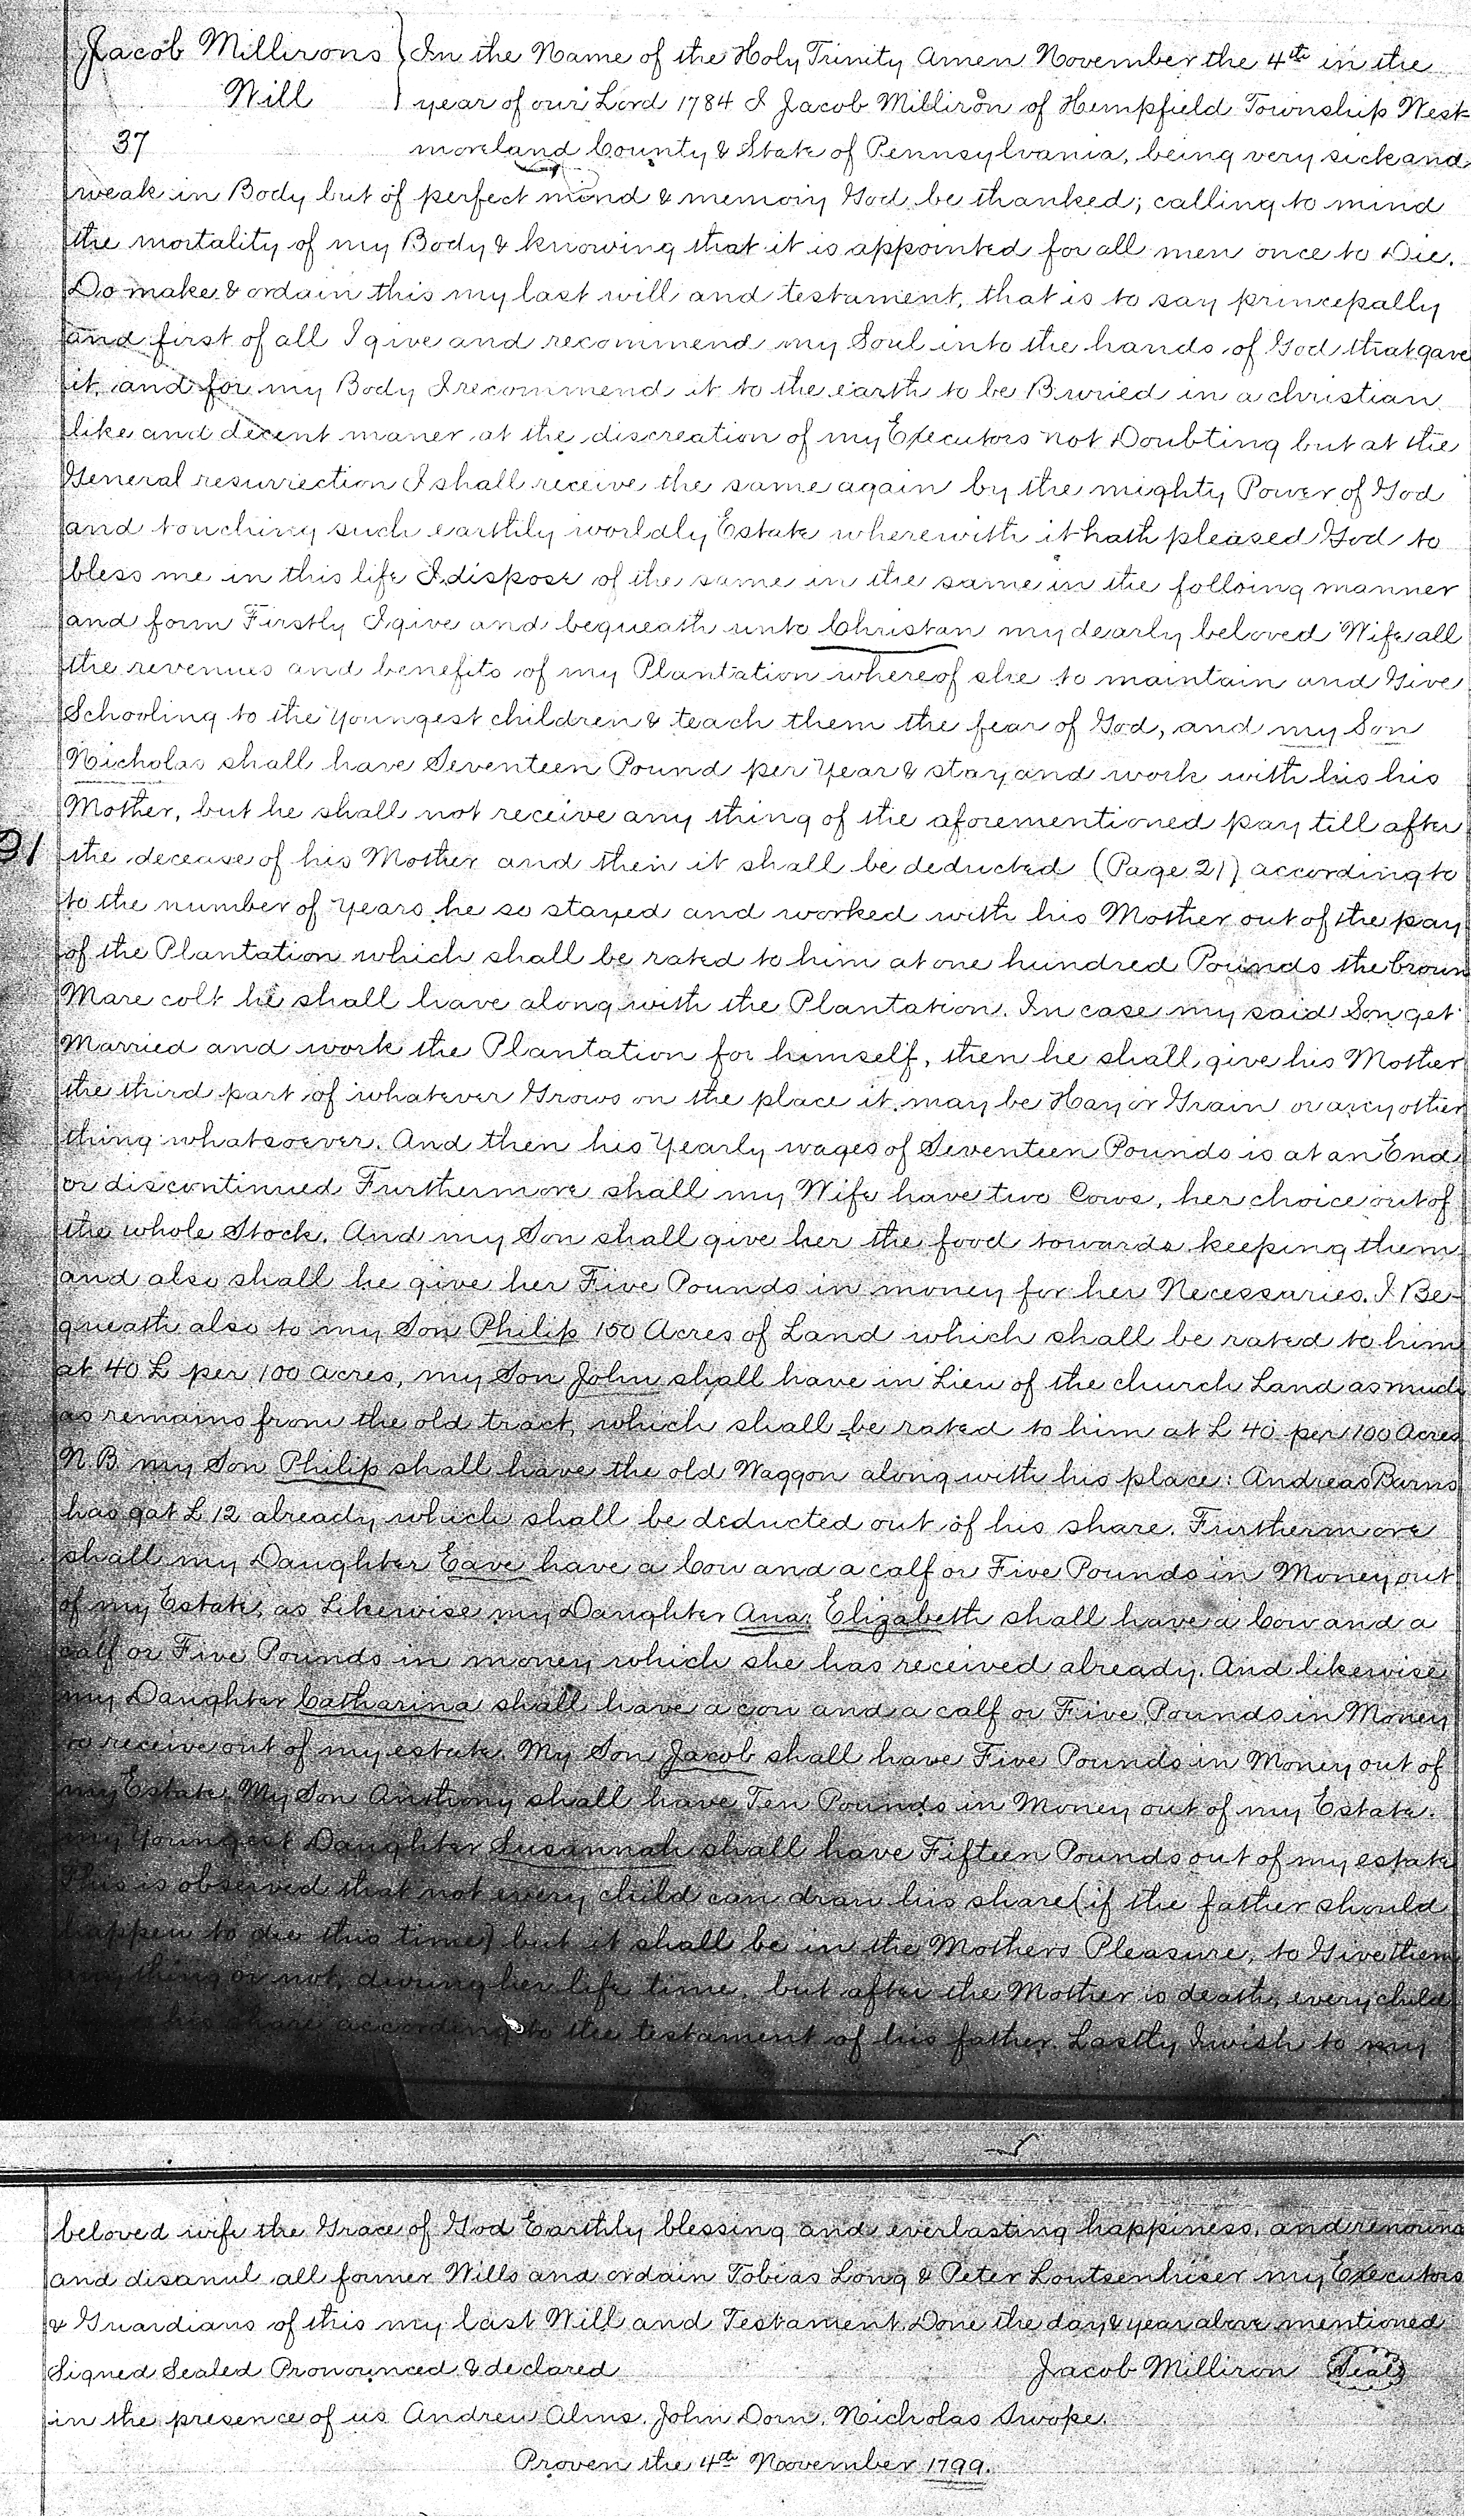 Jacob Millirons } In the Name of the Holy Trinity Amen November the 4th in the
Will } year of our Lord 1784 I Jacob Milliron of Hempfield Township West-
37 moreland County & State of Pennsylvania, being very sick and
weak in Body but of perfect mind & memory God be thanked; calling to mind
the mortality of my Body & knowing that it is appointed for all men once to Die.
Do make & ordain this my last will and testament, that is to say princepally
and first of all I give and recommend my Soul into the hands of God that gave
it, and for my Body I recommend it to the earth to be Buried in a christian
like and decent maner at the discreation of my Executors not Doubting but at the
General resurrection I shall receive the same again by the mighty Power of God
and touching such earthly worldly Estate wherewith it hath pleased God to
bless me in this life I dispose of the same in the same in the folloing manner
and form Firstly I give and bequeath unto Christan my dearly beloved Wife all
the revenues and benefits of my Plantation whereof she to maintain and Give
Schooling to the Youngest children & teach them the fear of God, and my Son
Nicholas shall have Seventeen Pound per Year & stay and work with his his
Mother, but he shall not receive any thing of the aforementioned pay till after
91 the decease of his Mother and then it shall be deducted (Page 21) according to
to the number of Years he so stayed and worked with his Mother out of the pay
of the Plantation which shall be rated to him at one hundred Pounds the brown
Mare colt he shall have along with the Plantation. In case my said Son get
Married and work the Plantation for himself, then he shall give his Mother
the third part of whatever Grows on the place it may be Hay or Grain or any other
thing whatsoever. And then his Yearly wages of Seventeen Pounds is at an End
or discontinued Furthermore shall my Wife have two Cows, her choice out of
the whole Stock. And my Son shall give her the food towards keeping them
and also shall he give her Five Pounds in money for her Necessaries. I Be-
queath also to my Son Philip 150 Acres of Land which shall be rated to him
at 40 £ per 100 acres, my Son John shall have in Lieu of the church Land as much
as remains from the old tract, which shall be rated to him at £ 40 per 100 Acres
N.B. my Son Philip shall have the old Waggon along with his place: Andreas Burns
has got £ 12 already which shall be deducted out of his share. Furthermore
shall my Daughter Eave have a Cow and a calf or Five Pounds in Money out
of my Estate, as Likewise my Daughter Ana Elizabeth shall have a Cow and a
calf or Five Pounds in money which she has received already. And likewise
my Daughter Catharina shall have a cow and a calf or Five Pounds in Money
to receive out of my estate. My Son Jacob shall have Five Pounds in Money out of
my Estate. My Son Anthony shall have Ten Pounds in Money out of my Estate.
my Youngest Daughter Susannah shall have Fifteen Pounds out of my estate
This is observed that not every child can draw his share (if the father should
happen to die this time) but it shall be in the Mothers Pleasure, to Give them
any thing or not, during her life time, but after the Mother is death, every child
his share according to the testament of his father. Lastly I wish to my
beloved wife the Grace of God Earthly blessing and everlasting happiness, and renounce
and disanul all former Wills and ordain Tobias Long & Peter Loutsenhiser my Executors
& Guardians of this my last Will and Testament. Done the day & year above mentioned
Signed Sealed Pronounced & declared Jacob Milliron Seal
in the presence of us Andrew Alms. John Dorn. Nicholas Swope.
Proven the 4th November 1799.